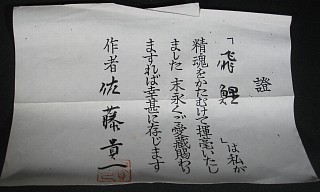 證
「 鯉 」は私が
精魂をかたむけて揮毫いたし
ました 末永くご愛蔵賜わり
ますれば幸甚に存じます
作者 佐藤貴一